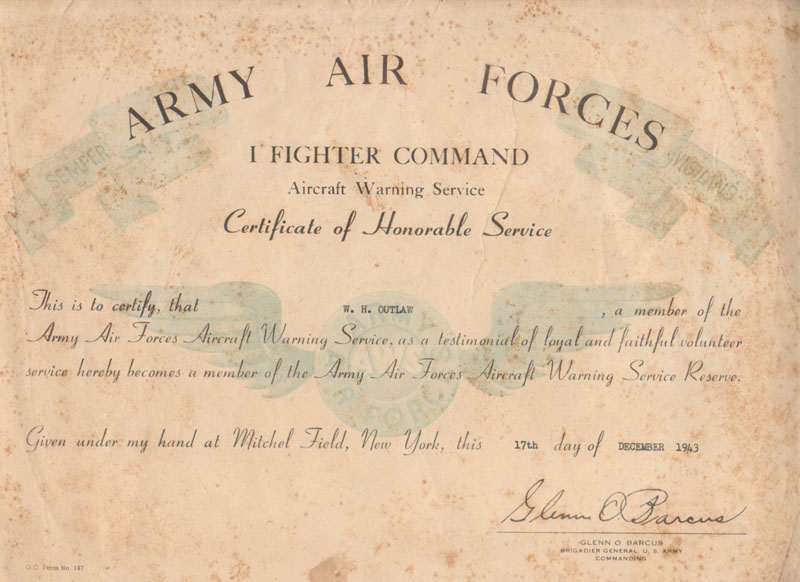 ARMY AIR FORCES
SEMPER
VIGILANS
I FIGHTER COMMAND
Aircraft Warning Service
Certificate of Honorable Service
This is to certify, that W. H. OUTLAW , a member of the
Army Air Forces Aircraft Warning Service, as a testimonial of loyal and faithful volunteer
service hereby becomes a member of the Army Air Forces Aircraft Warning Service Reserve.
ARMY
AWS
AIR FORCES
Given under my hand at Mitchel Field, New York, this 17th day of DECEMBER 1943
Glenn O Barcus
GLENN O. BARCUS
BRIGADIER GENERAL, U. S. ARMY
COMMANDING
Form No. 147